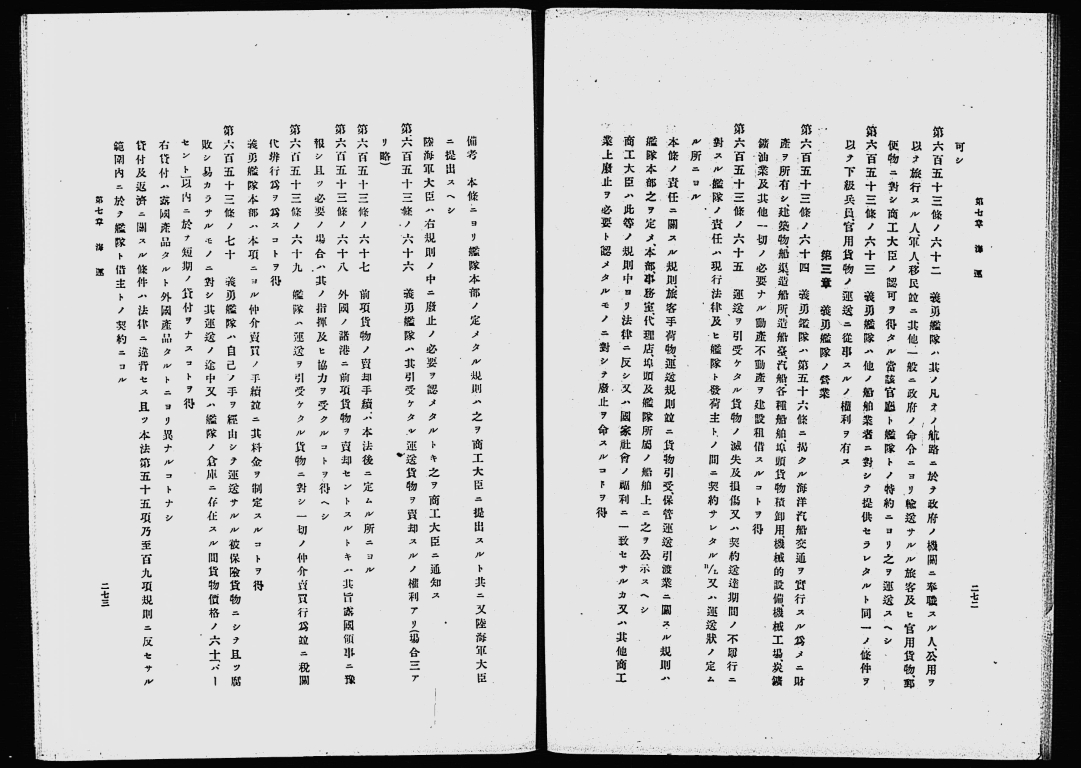 第七章　海運
二七二
可シ
第六百五十三條ノ六十二　義勇艦隊ハ其ノ凡テノ航路ニ於テ政府ノ機關ニ奉職スル人、公用ヲ
以テ旅行スル人、軍人移民竝ニ其他一般ニ政府ノ命令ニヨリ輸送サルル旅客及ヒ官用貨物、郵
便物ニ對シ商工大臣ノ認可ヲ得タル當該官廳ト艦隊トノ特約ニヨリ之ヲ運送スヘシ
第六百五十三條ノ六十三　義勇艦隊ハ他ノ船舶業者ニ對シテ提供セラレタルト同一ノ條件ヲ
以テ下級兵員官用貨物ノ運送ニ從事スルノ權利ヲ有ス
第三章　義勇艦隊ノ營業
第六百五十三條ノ六十四　義勇艦隊ハ第五十六條ニ揭クル海洋汽船交通ヲ實行スル爲メニ財
產ヲ所有シ建築物、船渠、造船所、造船臺、汽船各種船舶、埠頭貨物積卸用、機械的設備機械工場炭鑛
鑛油業及其他一切ノ必要ナル動產不動產ヲ建設租借スルコトヲ得
第六百五十三條ノ六十五　運送ヲ引受ケタル貨物ノ滅失及損傷又ハ契約送達期間ノ不履行ニ
對スル艦隊ノ責任ハ現行法律及ヒ艦隊ト發荷主トノ間ニ契約サレタルB/L又ハ運送狀ノ定ム
ル所ニヨル
本條ノ責任ニ關スル規則旅客手荷物運送規則竝ニ貨物引受、保管運送引渡業ニ關スル規則ハ
艦隊本部之ヲ定メ、本部事務室代理店、埠頭及艦隊所屬ノ船舶上ニ之ヲ公示スヘシ
商工大臣ハ此等ノ規則中ヨリ法律ニ反シ又ハ國家社會ノ福利ニ一致セサルカ又ハ其他商工
業上廢止ヲ必要ト認メタルモノニ對シテ廢止ヲ命スルコトヲ得
備考　本條ニヨリ艦隊本部ノ定メタル規則ハ之ヲ商工大臣ニ提出スルト共ニ又陸海軍大臣
ニ提出スヘシ
陸海軍大臣ハ右規則ノ中ニ廢止ノ必要ヲ認メタルトキ之ヲ商工大臣ニ通知ス
第六百五十三條ノ六十六　義勇艦隊ハ其引受ケタル運送貨物ヲ賣却スルノ權利アリ（場合三ア
リ略）
第六百五十三條ノ六十七　前項貨物ノ賣却手續ハ本法後ニ定ムル所ニヨル
第六百五十三條ノ六十八　外國ノ諸港ニ前項貨物ヲ賣却セントスルトキハ其旨露國領事ニ豫
報シ且ツ必要ノ場合ハ其ノ指揮及ヒ協力ヲ受クルコトヲ得ヘシ
第六百五十三條ノ六十九　艦隊ハ運送ヲ引受ケタル貨物ニ對シ一切ノ仲介賣買行爲竝ニ稅關
代辨行爲ヲスコトヲ得
義勇艦隊本部ハ本項ニヨル仲介賣買ノ手續竝ニ其料金ヲ制定スルコトヲ得
第六百五十三條ノ七十　義勇艦隊ハ自己ノ手ヲ經由シテ運送サルル被保險貨物ニシテ且ツ腐
敗シ易カラサルモノニ對シ其運送ノ途中又ハ艦隊ノ倉庫ニ存在スル間貨物價格ノ六十「パー
セント」以内ニ於テ短期ノ貸付ヲナスコトヲ得
右貸付ハ露國產品タルト外國產品タルトニヨリ異ナルコトナシ
貸付及返濟ニ關スル條件ハ法律ニ違背セス且ツ本法第五十五項乃至百九項規則ニ反セサル
範圍内ニ於テ艦隊ト借主トノ契約ニヨル
第七章　海運
二七三